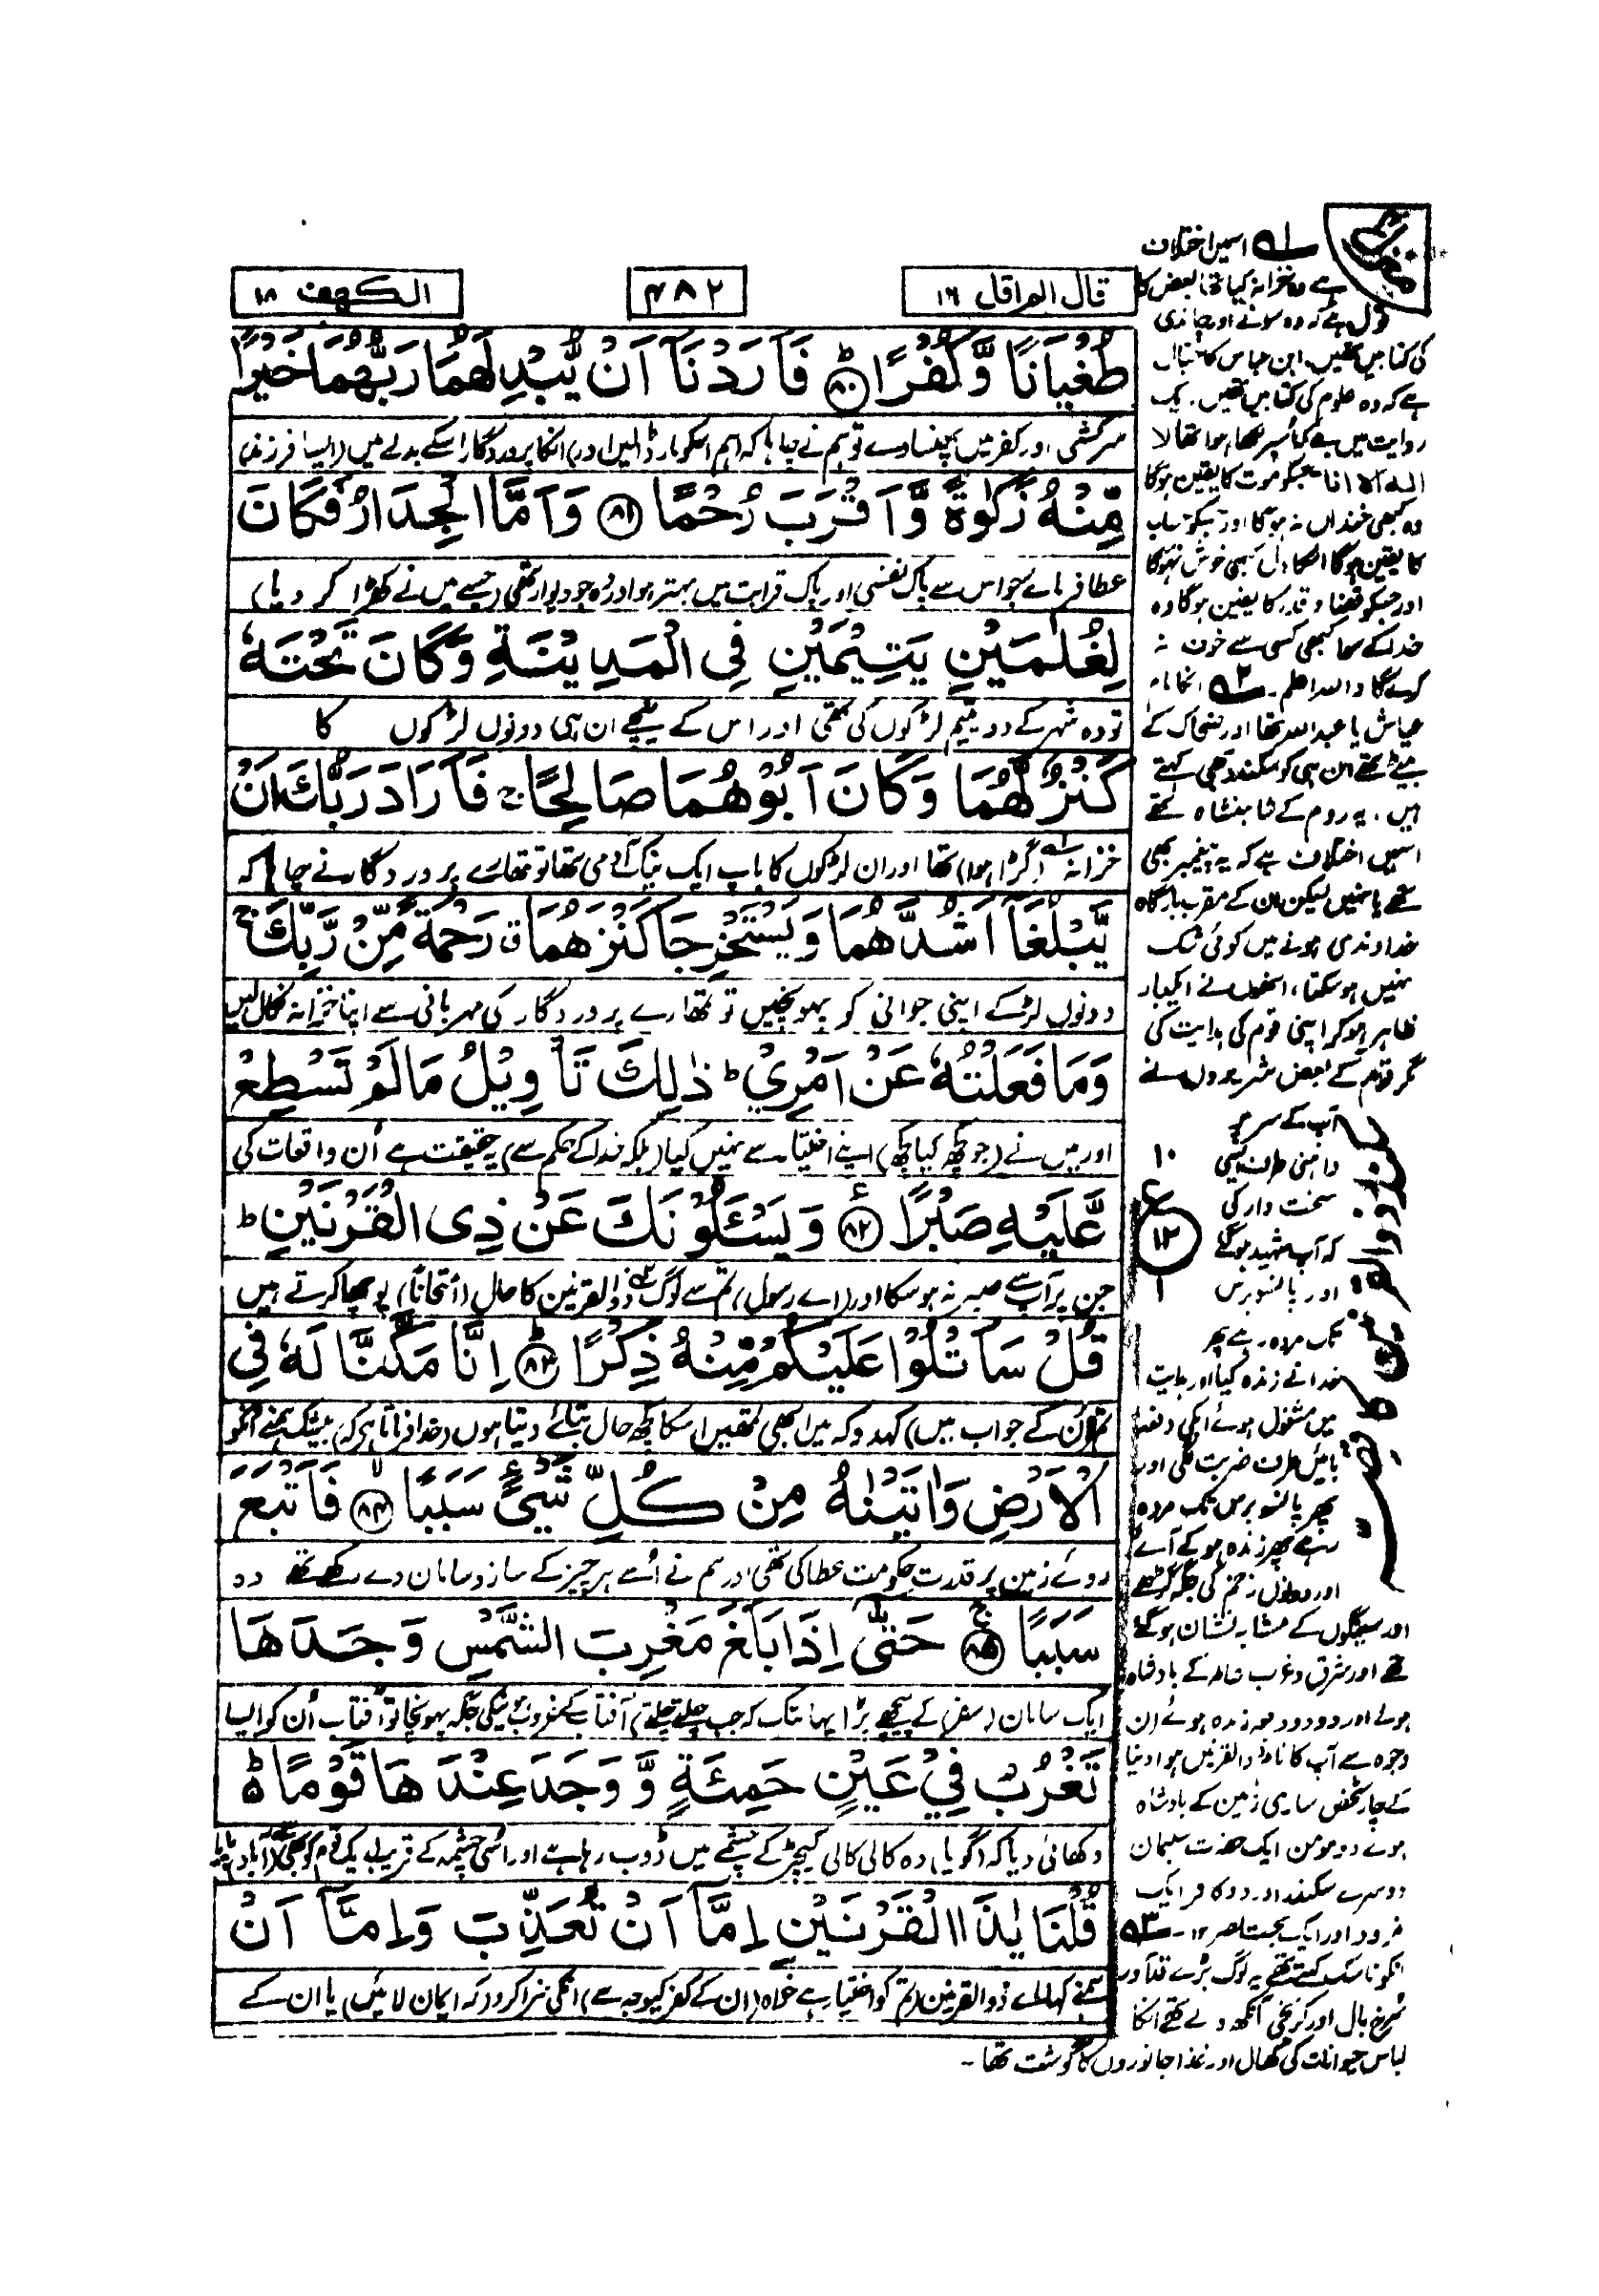 قال الم اقل ۱۶
۴۸۲
الکہف ۱۸
طُغْيَانًا وَّكُفْرًا ۝۸۰ فَاَرَدْنَآ اَنْ يُّبْدِلَهُمَا رَبُّهُمَا خَيْرًا
سرکشی اور کفر میں پھنسا دے تو ہم نے چاہا کہ (ہم اسکو مار ڈالیں اور) انکا پروردگار اسکے بدلے میں (ایسا فرزند)
مِّنْهُ زَكٰوةً وَّاَقْرَبَ رُحْمًا ۝۸۱ وَاَمَّا الْجِدَارُ فَكَانَ
عطا فرمائے جو اس سے پاک نفسی اور پاک قرابت میں بہتر ہو اور وہ جو دیوار تھی (جسے میں نے کھڑا کر دیا)
لِغُلٰمَيْنِ يَتِيْمَيْنِ فِى الْمَدِيْنَةِ وَكَانَ تَحْتَهٗ
تو وہ شہر کے دو یتیم لڑکوں کی تھی اور اس کے نیچے ان ہی دونوں لڑکوں کا
كَنْزٌ لَّهُمَا وَكَانَ اَبُوْهُمَا صَالِحًا ۚ فَاَرَادَ رَبُّكَ اَنْ
خزانہ (گڑا ہوا) تھا اور ان لڑکوں کا باپ ایک نیک آدمی تھا تو تمھارے پروردگار نے چاہا کہ
يَّبْلُغَآ اَشُدَّهُمَا وَيَسْتَخْرِجَا كَنْزَهُمَا ق رَحْمَةً مِّنْ رَّبِّكَ ۚ
دونوں لڑکے اپنی جوانی کو پہونچیں تو تمھارے پروردگار کی مہربانی سے اپنا خزانہ نکال لیں
وَمَا فَعَلْتُهٗ عَنْ اَمْرِيْ ؕ ذٰلِكَ تَاْوِيْلُ مَا لَمْ تَسْطِعْ
اور میں نے (جو کچھ کیا کچھ) اپنے اختیار سے نہیں کیا (بلکہ خدا کے حکم سے) یہ حقیقت ہے اُن واقعات کی
عَّلَيْهِ صَبْرًا ۝۸۲ وَيَسْئَلُوْنَكَ عَنْ ذِى الْقَرْنَيْنِ ؕ
جن پر آپ سے صبر نہ ہو سکا اور (اے رسول) تم سے لوگ ذوالقرنین کا حال (امتحاناً) پوچھا کرتے ہیں
قُلْ سَاَتْلُوْا عَلَيْكُمْ مِّنْهُ ذِكْرًا ۝۸۳ اِنَّا مَكَّنَّا لَهٗ فِى
تم اُن کے جواب میں) کہدو کہ میں ابھی تمھیں اسکا کچھ حال بتائے دیتا ہوں (خدا فرماتا ہے کہ) بیشک ہمنے انکو
الْاَرْضِ وَاٰتَيْنٰهُ مِنْ كُلِّ شَيْءٍ سَبَبًا ۝۸۴ فَاَتْبَعَ
روئے زمین پر قدرت حکومت عطا کی تھی اور ہم نے اُسے ہر چیز کے ساز و سامان دے رکھے تھے وہ
سَبَبًا ۝۸۵ حَتّٰى اِذَا بَلَغَ مَغْرِبَ الشَّمْسِ وَجَدَهَا
ایک سامان (سفر) کے پیچھے پڑا یہاں تک کہ جب (چلتے چلتے) آفتاب کے غروب ہونیکی جگہ پہونچا تو آفتاب اُن کو ایسا
تَغْرُبُ فِيْ عَيْنٍ حَمِئَةٍ وَّوَجَدَ عِنْدَهَا قَوْمًا ؕ
دکھائی دیا کہ (گویا) وہ کالی کالی کیچڑ کے چشمے میں ڈوب رہا ہے اور اسی چشمہ کے قریب ایک قوم کو بھی (آباد) پایا
قُلْنَا يٰذَا الْقَرْنَيْنِ اِمَّآ اَنْ تُعَذِّبَ وَاِمَّآ اَنْ
ہمنے کہا اے ذوالقرنین (تم کو اختیار ہے) خواہ (ان کے کفر کیوجہ سے) انکی سزا کرو (کہ ایمان لائیں) یا ان کے
۱۰
ع
۱۲
۱
۱ اسمیں اختلاف
ہے وہ خزانہ کیا تھا بعض کا
قول ہے کہ وہ سونے اور چاندی
کی کتابیں تھیں، ابن عباس کا خیال
ہے کہ وہ علوم کی کتابیں تھیں۔ ایک
روایت میں ہے کہ اُسپر لکھا ہوا تھا لا
الہ الا انا جسکو موت کا یقین ہوگا
وہ کبھی خنداں نہ ہوگا اور جسکو حساب
کا یقین ہوگا اسکا دل کبھی خوش نہ ہوگا
اور جسکو قضا و قدر کا یقین ہوگا وہ
خدا کے سوا کبھی کسی سے خوف نہ
کریگا واللہ اعلم۔ ۲ انکا نام
عیاش یا عبداللہ تھا اور ضحاک کے
بیٹے تھے ان ہی کو سکندر بھی کہتے
ہیں، یہ روم کے شاہنشاہ تھے
اسمیں اختلاف ہے کہ یہ پیغمبر بھی
تھے یا نہیں لیکن ان کے مقرب بارگاہ
خداوندی ہونے میں کوئی شک
نہیں ہو سکتا، انھوں نے ایکبار
ظاہر ہو کر اپنی قوم کی ہدایت کی
مگر قوم کے بعض شریروں نے
آپ کے سر پر
داہنی طرف ایسی
سخت وار کی
کہ آپ شہید ہو گئے
اور پانسو برس
تک مردہ رہے پھر
خدا نے زندہ کیا اور ہدایت
میں مشغول ہوئے ابکی دفعہ
بائیں طرف ضربت لگی اور
پھر پانسو برس تک مردہ
رہے پھر زندہ ہو کے آئے
اور دونوں زخم کی جگہ گڑھے
اور سینگوں کے مشابہ نشان ہوگئے
تھے اور شرق و غرب عالم کے بادشاہ
ہوئے اور دو دفعہ زندہ ہوئے ان
وجوہ سے آپ کا نام ذوالقرنین ہوا دنیا
کے چار شخص ساری زمین کے بادشاہ
ہوئے دو مومن ایک حضرت سلیمان
دوسرے سکندر اور دو کافر ایک
نمرود اور ایک بخت نصر ۱۲۔ ۳
انکو ناسک کہتے تھے یہ لوگ بڑے قدآور
سُرخ بال اور کرنجی آنکھ والے تھے انکا
لباس حیوانات کی کھال اور غذا جانوروں کا گوشت تھا۔